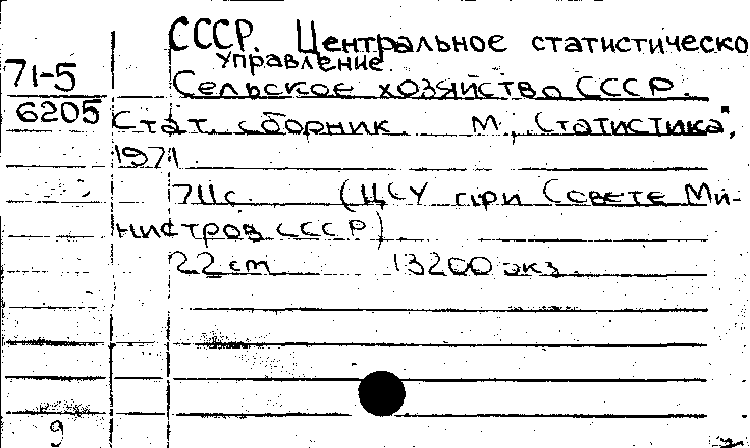 СССР. Центральное статистическо
управление.
71-5
Сельское хозяйство СССР.
6205
Стат. сборник. М., „Статистика",
1971
711 с. (ЦСУ при Совете Ми-
нистров СССР)
22 cm 13200 экз.
9